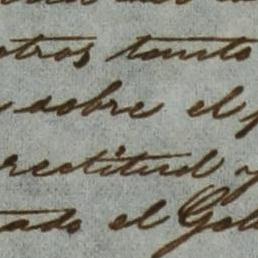 otros tanto
sobre el
rectitud y
tado el Gob